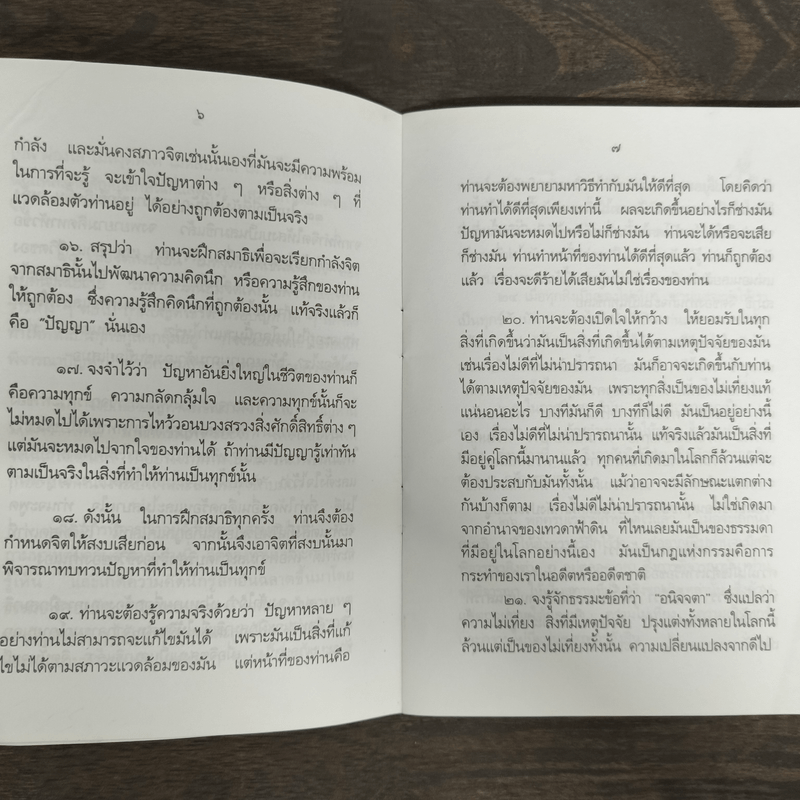 ๖
กำลัง และมั่นคงสภาวจิตเช่นนั้นเองที่มันจะมีความพร้อม
ในการที่จะรู้ จะเข้าใจปัญหาต่าง ๆ หรือสิ่งต่าง ๆ ที่
แวดล้อมตัวท่านอยู่ ได้อย่างถูกต้องตามเป็นจริง
๑๖. สรุปว่า ท่านจะฝึกสมาธิเพื่อจะเรียกกำลังจิต
จากสมาธินั้นไปพัฒนาความคิดนึก หรือความรู้สึกของท่าน
ให้ถูกต้อง ซึ่งความรู้สึกคิดนึกที่ถูกต้องนั้น แท้จริงแล้วก็
คือ "ปัญญา" นั่นเอง
๑๗. จงจำไว้ว่า ปัญหาอันยิ่งใหญ่ในชีวิตของท่านก็
คือความทุกข์ ความกลัดกลุ้มใจ และความทุกข์นั้นก็จะ
ไม่หมดไปได้เพราะการไหว้วอนบวงสรวงสิ่งศักดิ์สิทธิ์ต่าง ๆ
แต่มันจะหมดไปจากใจของท่านได้ ถ้าท่านมีปัญญารู้เท่าทัน
ตามเป็นจริงในสิ่งที่ทำให้ท่านเป็นทุกข์นั้น
๑๘. ดังนั้น ในการฝึกสมาธิทุกครั้ง ท่านจึงต้อง
กำหนดจิตให้สงบเสียก่อน จากนั้นจึงเอาจิตที่สงบนั้นมา
พิจารณาทบทวนปัญหาที่ทำให้ท่านเป็นทุกข์
๑๙. ท่านจะต้องรู้ความจริงด้วยว่า ปัญหาหลาย ๆ
อย่างท่านไม่สามารถจะแก้ไขมันได้ เพราะมันเป็นสิ่งที่แก้
ไขไม่ได้ตามสภาวะแวดล้อมของมัน แต่หน้าที่ของท่านคือ
๗
ท่านจะต้องพยายามหาวิธีทำกับมันให้ดีที่สุด โดยคิดว่า
ท่านทำได้ดีที่สุดเพียงเท่านี้ ผลจะเกิดขึ้นอย่างไรก็ช่างมัน
ปัญหามันจะหมดไปหรือไม่ก็ช่างมัน ท่านจะได้หรือจะเสีย
ก็ช่างมัน ท่านทำหน้าที่ของท่านได้ดีที่สุดแล้ว ท่านก็ถูกต้อง
แล้ว เรื่องจะดีร้ายได้เสียมันไม่ใช่เรื่องของท่าน
๒๐. ท่านจะต้องเปิดใจให้กว้าง ให้ยอมรับในทุก
สิ่งที่เกิดขึ้นว่ามันเป็นสิ่งที่เกิดขึ้นได้ตามเหตุปัจจัยของมัน
เช่นเรื่องไม่ดีที่ไม่น่าปรารถนา มันก็อาจจะเกิดขึ้นกับท่าน
ได้ตามเหตุปัจจัยของมัน เพราะทุกสิ่งเป็นของไม่เที่ยงแท้
แน่นอนอะไร บางทีมันก็ดี บางทีก็ไม่ดี มันเป็นอยู่อย่างนี้
เอง เรื่องไม่ดีที่ไม่น่าปรารถนานั้น แท้จริงแล้วมันเป็นสิ่งที่
มีอยู่คู่โลกนี้มานานแล้ว ทุกคนที่เกิดมาในโลกก็ล้วนแต่จะ
ต้องประสบกับมันทั้งนั้น แม้ว่าอาจจะมีลักษณะแตกต่าง
กันบ้างก็ตาม เรื่องไม่ดีไม่น่าปรารถนานั้น ไม่ใช่เกิดมา
จากอำนาจของเทวดาฟ้าดิน ที่ไหนเลยมันเป็นของธรรมดา
ที่มีอยู่ในโลกอย่างนี้เอง มันเป็นกฎแห่งกรรมคือการ
กระทำของเราในอดีตหรืออดีตชาติ
๒๑. จงรู้จักธรรมะข้อที่ว่า "อนิจจตา" ซึ่งแปลว่า
ความไม่เที่ยง สิ่งที่มีเหตุปัจจัย ปรุงแต่งทั้งหลายในโลกนี้
ล้วนแต่เป็นของไม่เที่ยงทั้งนั้น ความเปลี่ยนแปลงจากดีไป